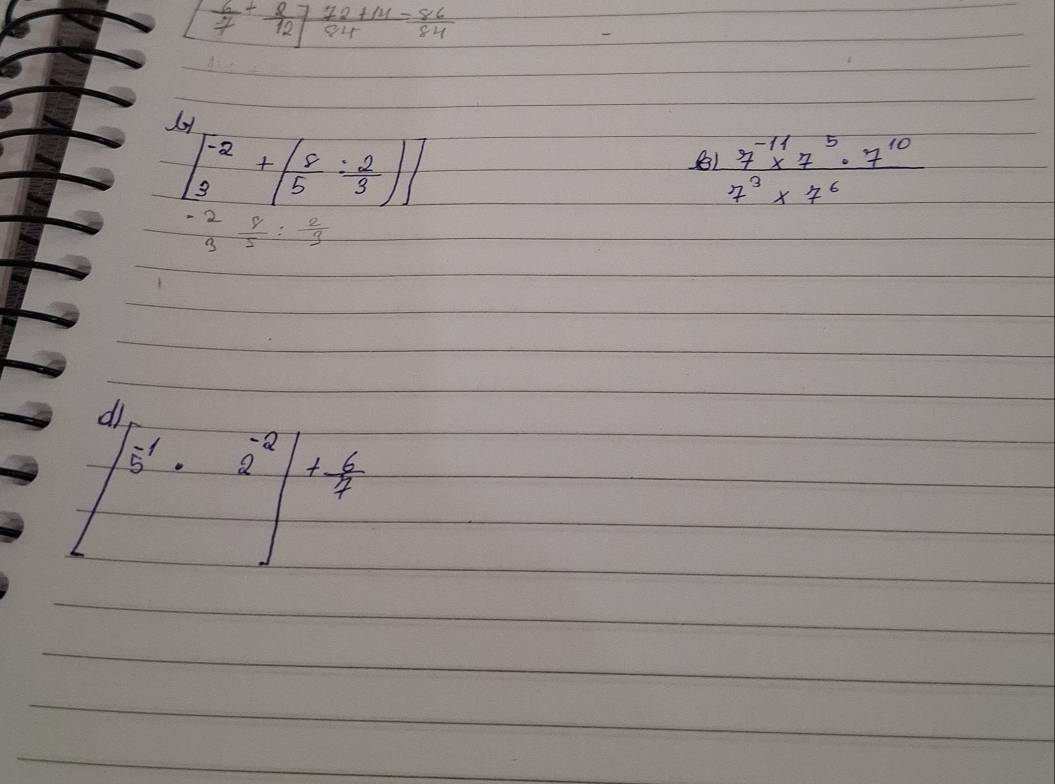 [6/7 + 2/12] 72+14 = 86
84 84
b)
[3^-2 + (8/5 : 2/3)]
-2/3 8/5 : 2/3
B) 7^-11 x 7^5 . 7^10
7^3 x 7^6
d)
[5^-1 . 2^-2] + 6/7